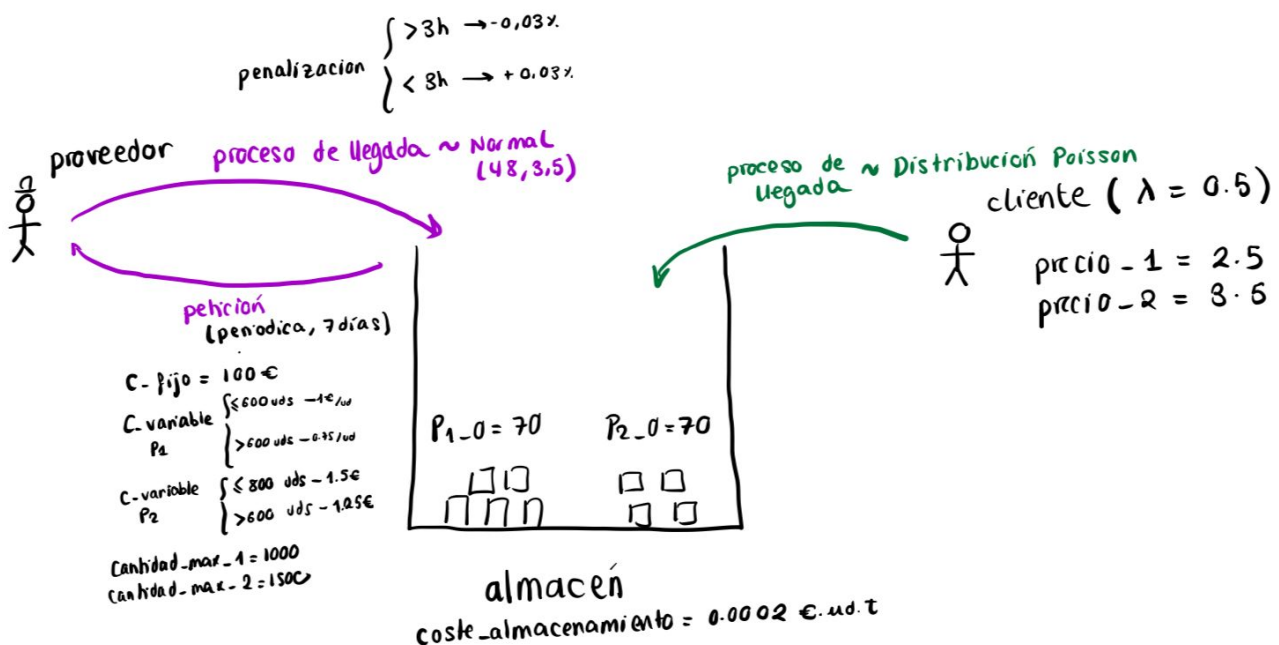 penalización
>3h → -0,03%.
<3h → +0.03%.
proveedor
proceso de llegada ~ Normal
(48,3,5)
petición
(periodica, 7 días)
C-fijo = 100 €
C-variable
P1
≤600 uds -1€/ud
>600 uds - 0.75/ud
C-variable
P2
≤ 800 uds - 1.5€
>600 uds - 1.25€
Cantidad_max_1 = 1000
Cantidad_max_2 = 1500
P1_0 = 70
P2_0 = 70
almacén
coste_almacenamiento = 0.0002 €.ud.t
proceso de
llegada ~ Distribución Poisson
cliente (λ = 0.5)
precio_1 = 2.5
precio_2 = 3.5